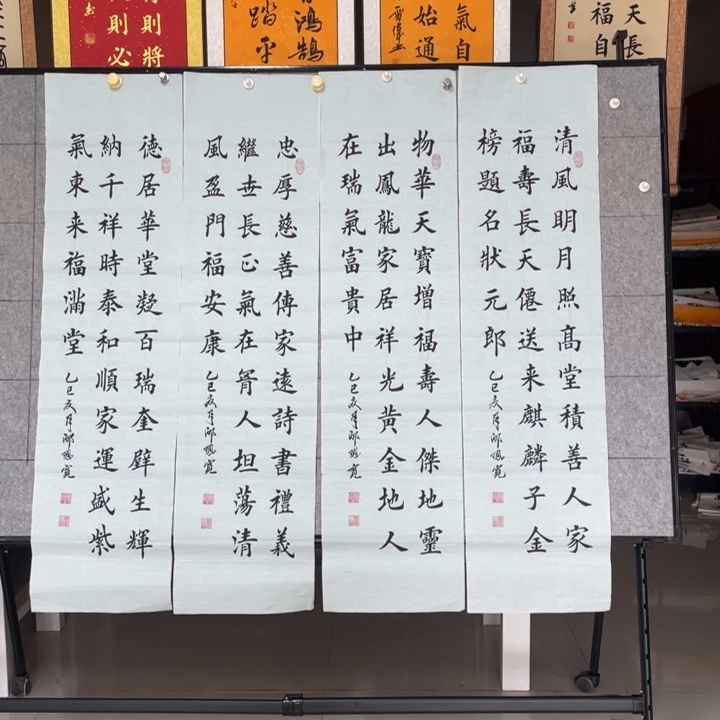 天長
福自
氣自
始通
鴻鵠
踏平
則將
則必
清風明月照髙堂積善人家
福壽長天僊送来麒麟子金
榜題名狀元郎
乙巳
物華天寶增福壽人傑地靈
出鳳龍家居祥光黄金地人
在瑞氣富貴中
乙巳
忠厚慈善傳家遠詩書禮義
繼世長正氣在胷人坦蕩清
風盈門福安康
乙巳
德居華堂凝百瑞奎壁生輝
納千祥時泰和順家運盛紫
氣東来福滿堂
乙巳